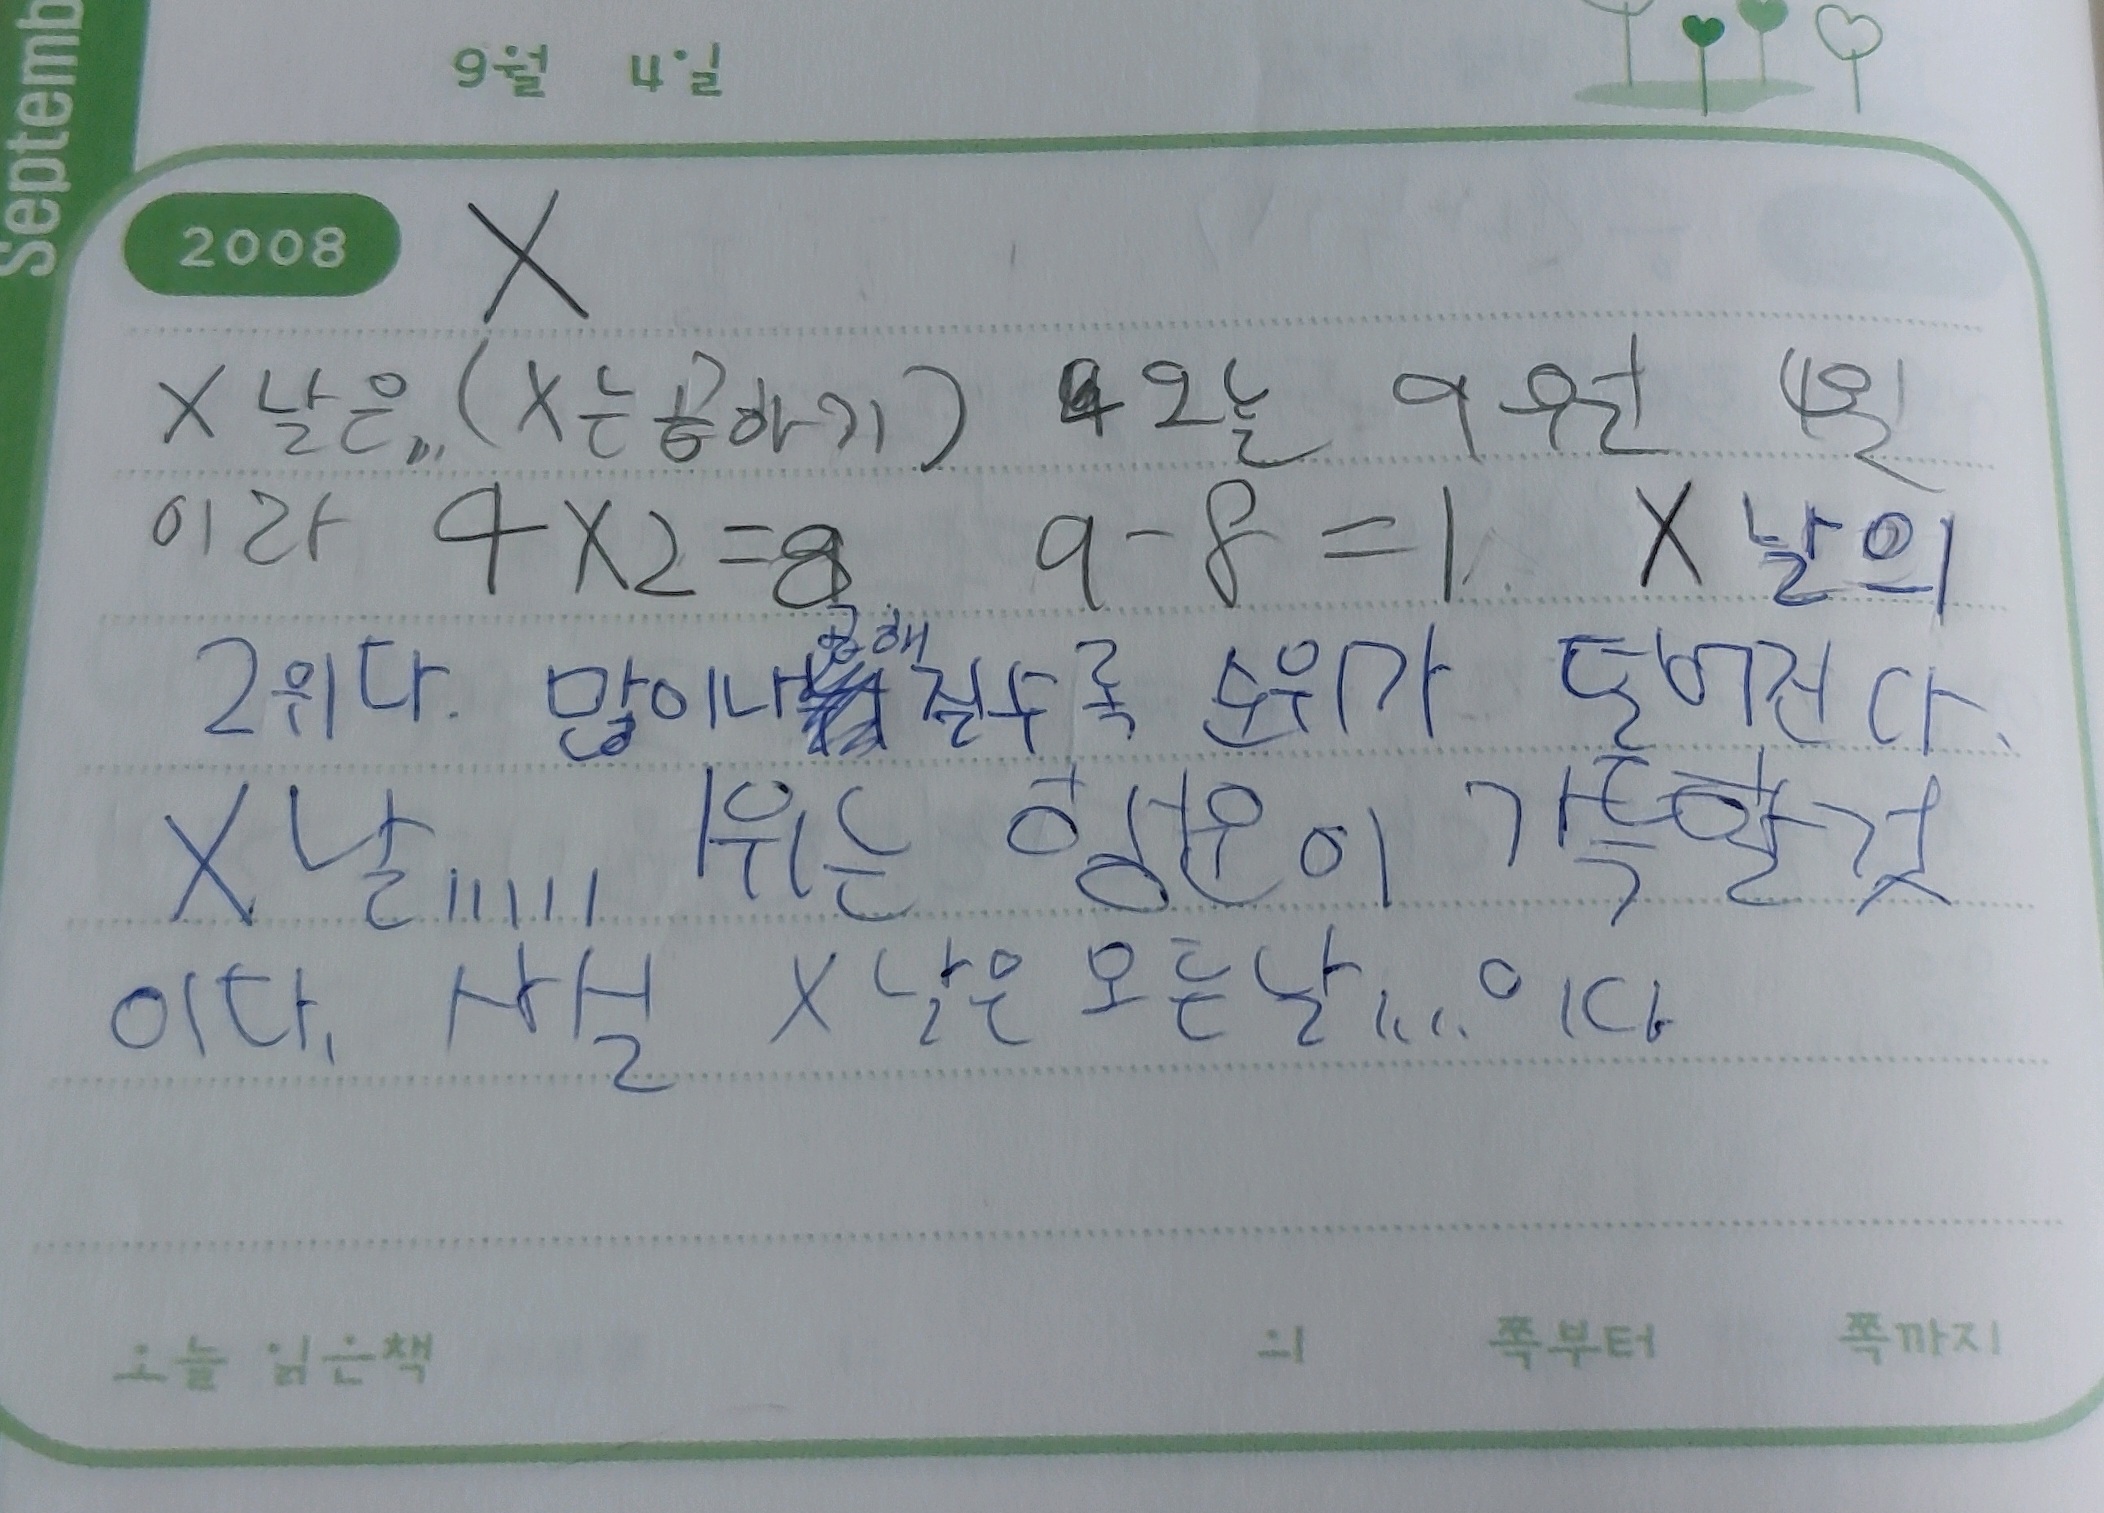 Septemb
9월 4일
2008 X
X 날은,,,(X는곱하기) 오늘 9월 4일
이라 4X2=8 9-8=1 X 날의
2위다. 많이나곱해질수록 순위가 떨어진다.
X날,,,,,, 1위는 행운이 가득할것
이다, 사실 X 날은 모든날,,,,..이다
오늘 읽은책 의 쪽부터 쪽까지